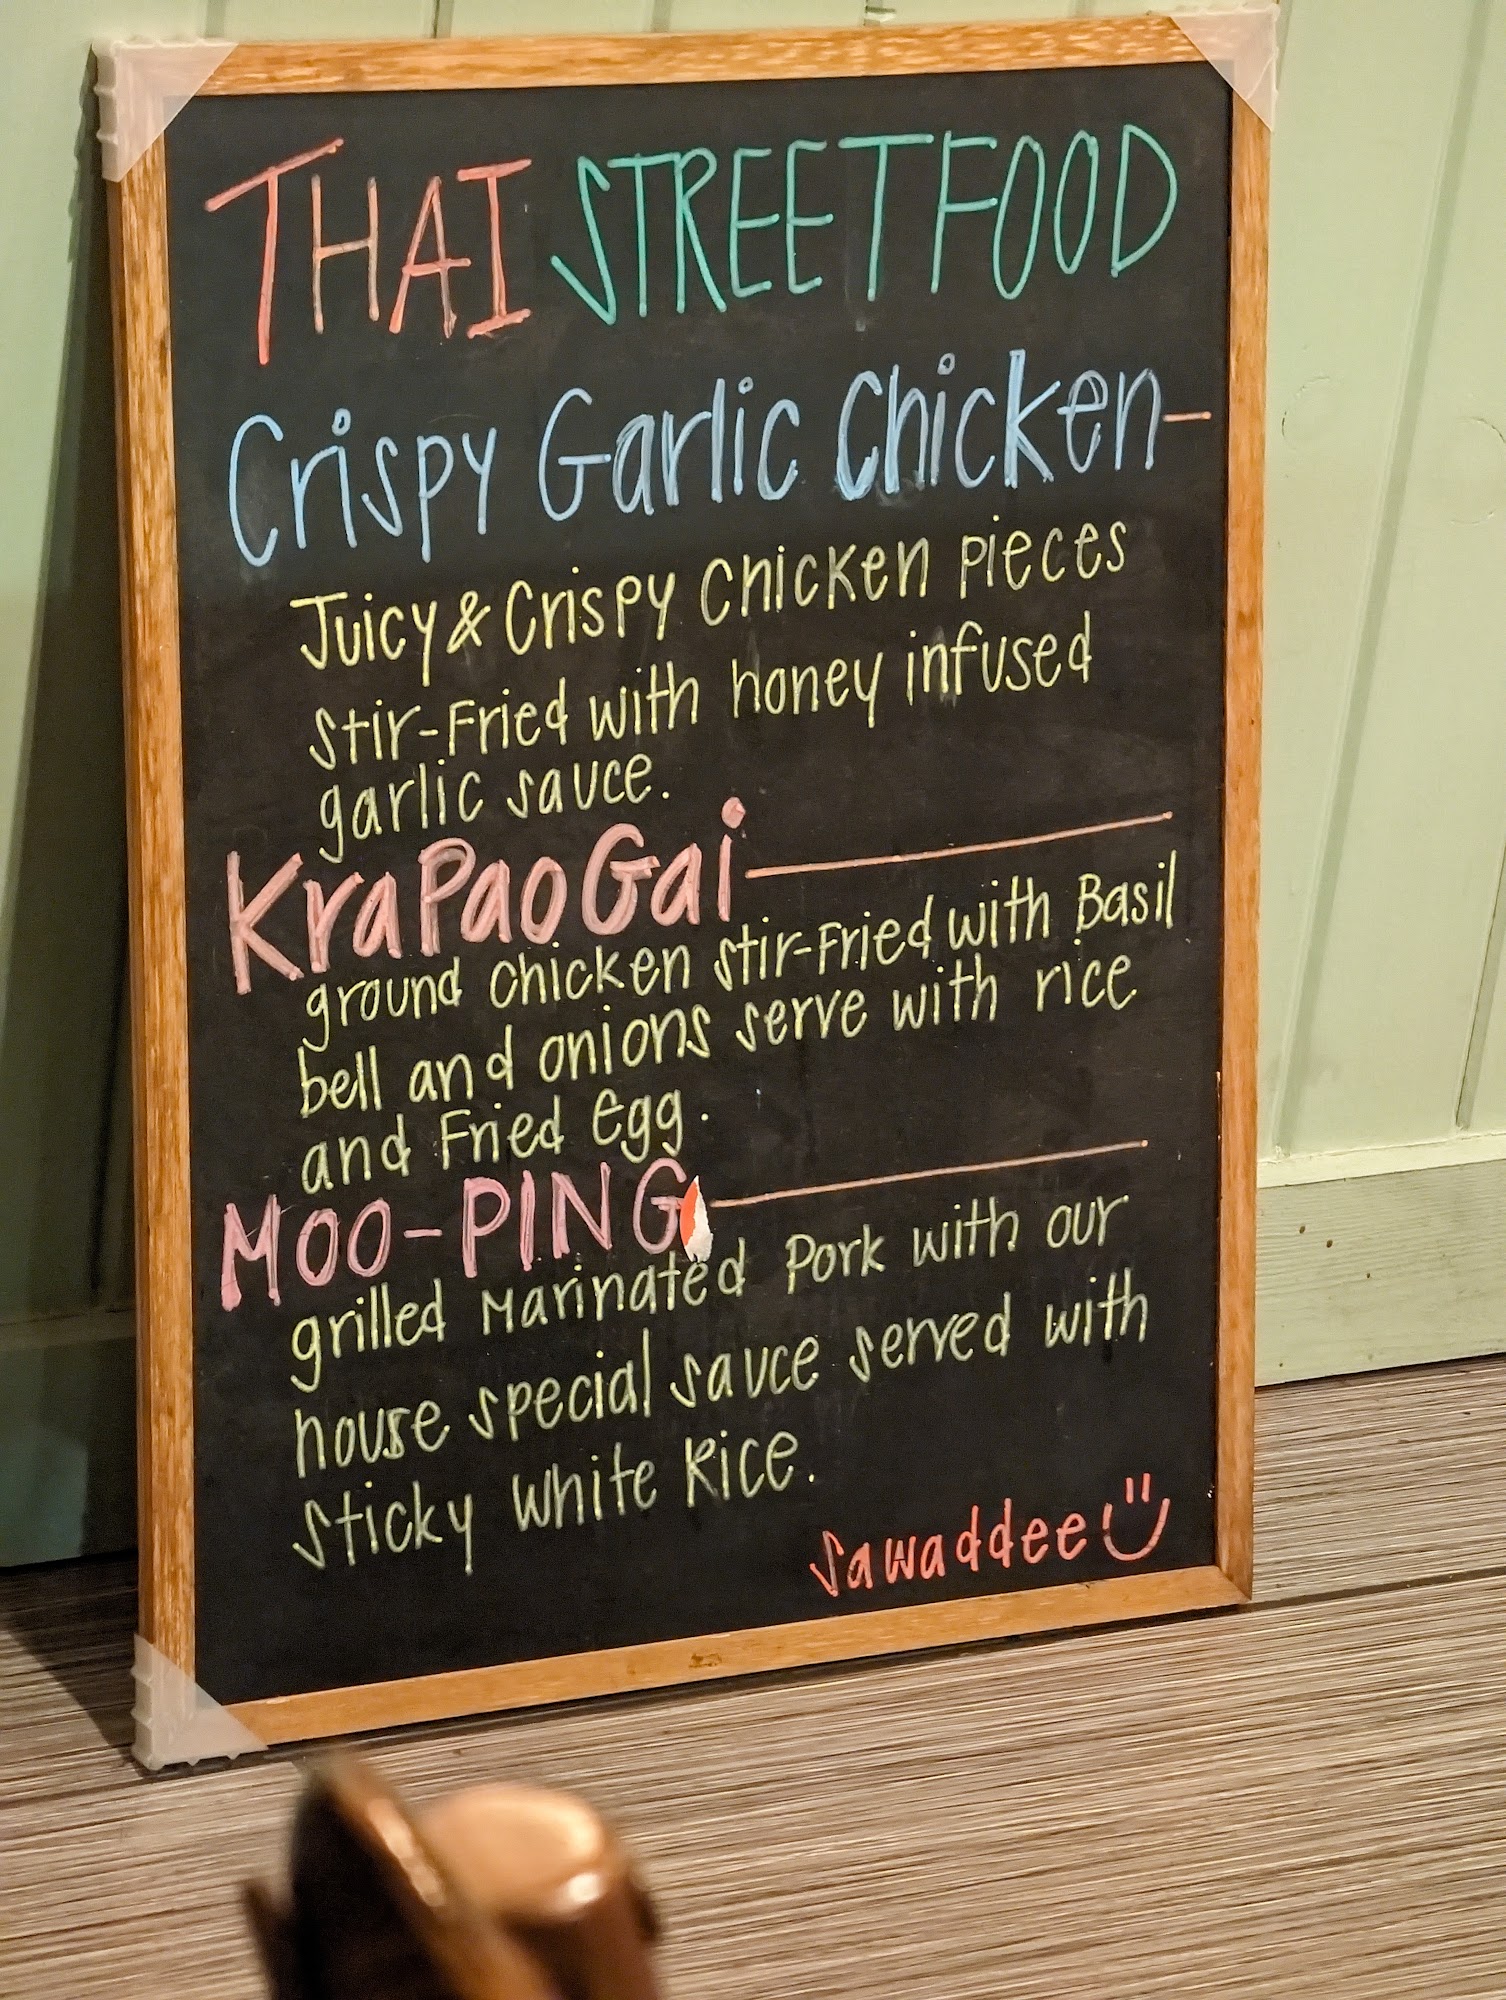 THAI STREET FOOD
Crispy Garlic Chicken-
Juicy & Crispy Chicken Pieces
Stir-Fried with honey infused
garlic sauce.
KraPao Gai
ground chicken stir-Fried with Basil
bell and onions serve with rice
and Fried egg.
MOO-PING
grilled Marinated Pork with our
house special sauce served with
sticky White Rice.
Sawaddee